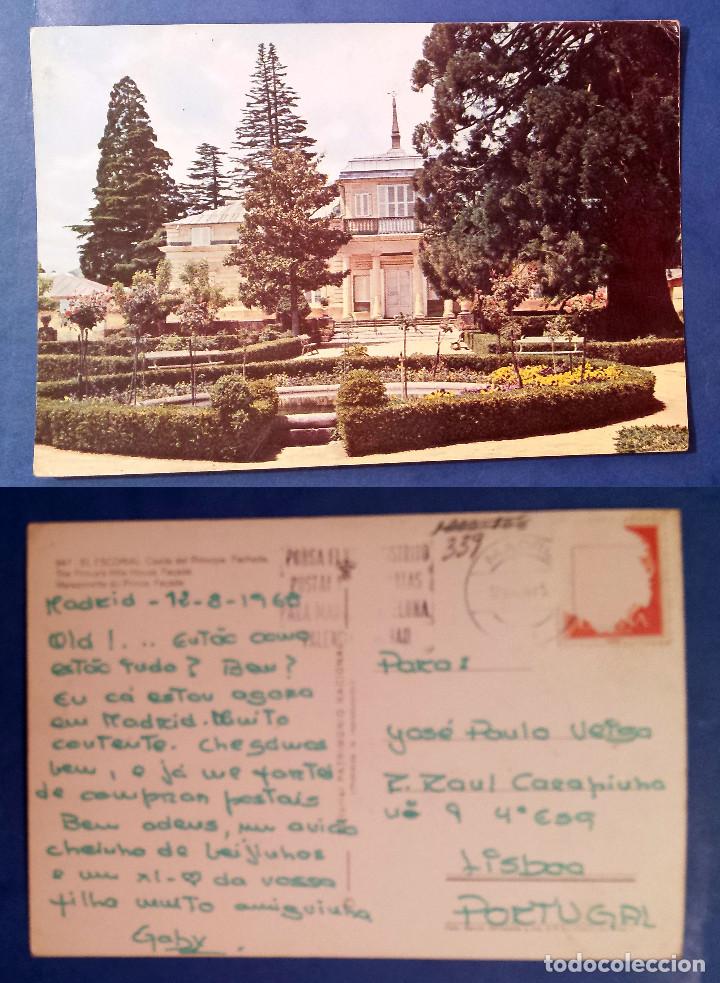 987 - EL ESCORIAL. Casita del Príncipe. Fachada.
The Prince's little House. Façade
Maisonnette du Prince. Façade
359
MADRID
Madrid - 12-8-1968
Olá!... Então como
estão tudo? Bem?
Eu cá estou agora
em Madrid. Muito
contente. Chegámos
bem, e já me fartei
de comprar postais
Bem adeus, um avião
cheinho de beijinhos
e um xi-♥ da vossa
filha muito amiguinha
Gaby.
PATRIMONIO NACIONAL
Para:
José Paulo Veiga
R. Raul Carapinha
nº 9 4º Esq
Lisboa
PORTUGAL
todocoleccion.net